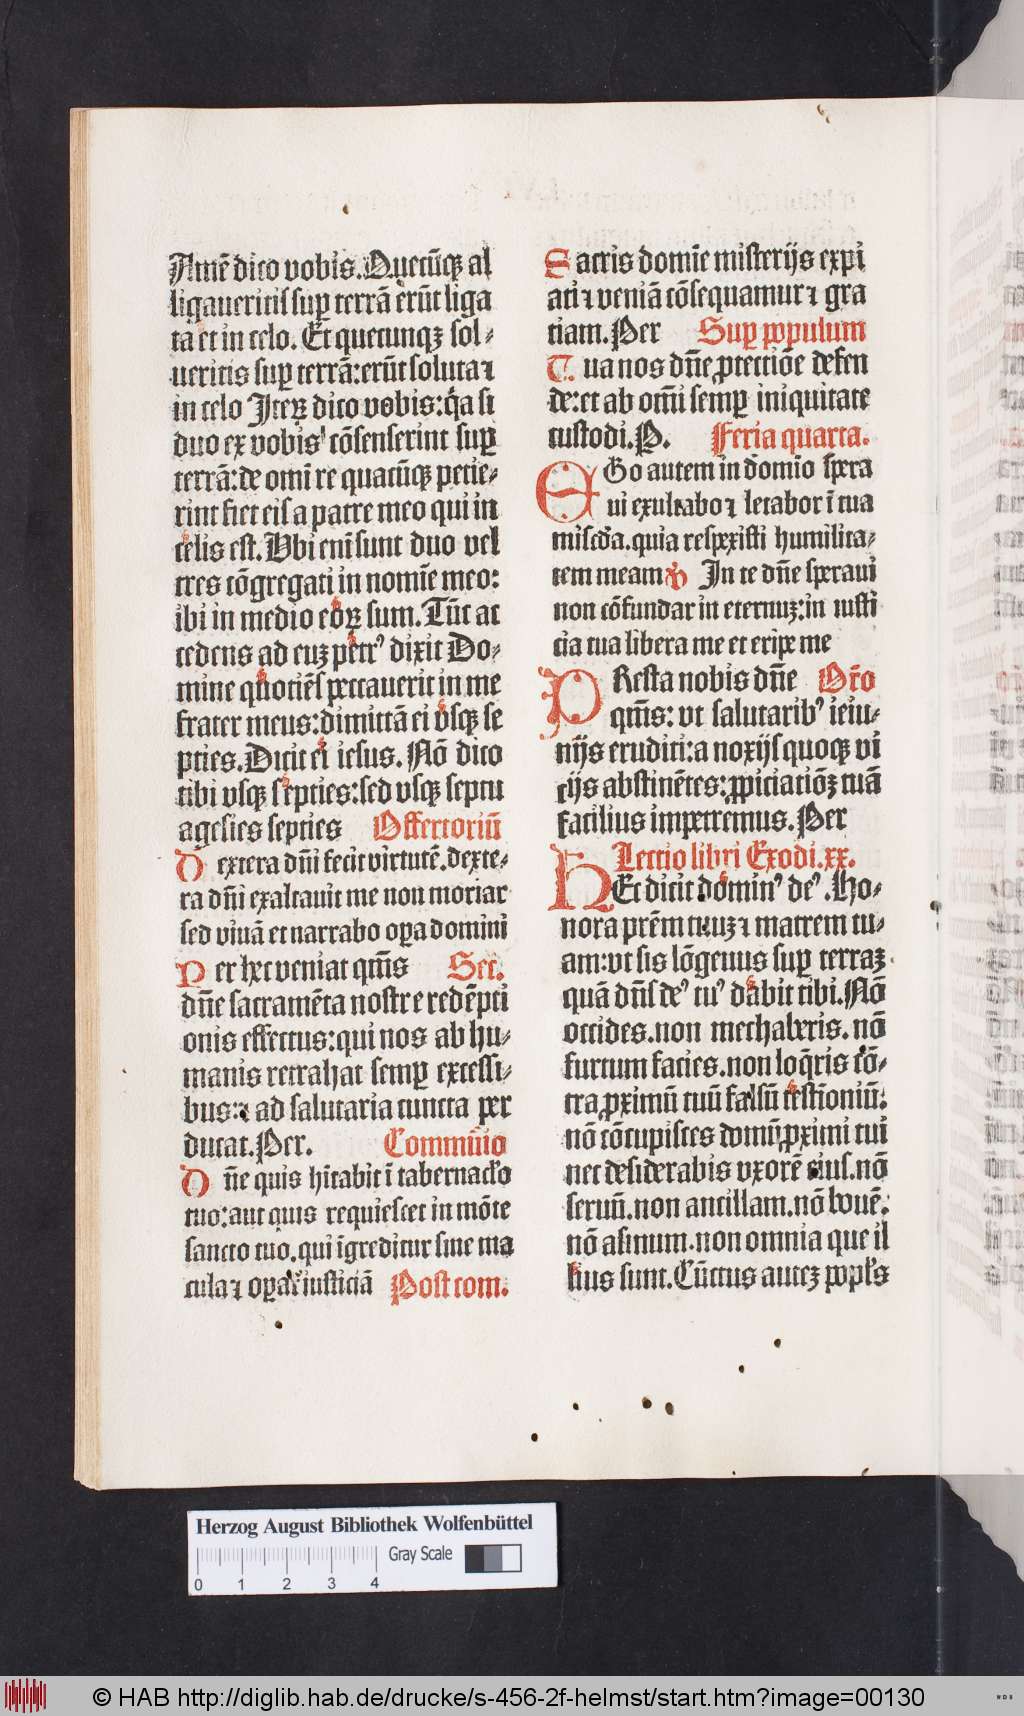 Amē dico vobis. Quecūqꝫ al
ligaueritis suꝑ terrā erūt liga
ta et in celo. Et quecunqꝫ sol⸗
ueritis suꝑ terrā: erūt soluta ⁊
in celo Iteꝝ dico vobis: qͣ si
duo ex vobis cōsenserint suꝑ
terrā: de omī re quacūqꝫ petie⸗
rint fiet eis a patre meo qui in
celis est. Vbi enī sunt duo vel
tres cōgregati in nomīe meo:
ibi in medio eoꝝ sum. Tūc ac
cedens ad euꝫ petrꝰ dixit Do⸗
mine quotiēs peccauerit in me
frater meus: dimittā ei vsqꝫ se
pties. Dicit ei iesus. Nō dico
tibi vsqꝫ septies: sed vsqꝫ septu
agesies septies Offertoriū
Dextera dn̄i fecit virtutē. dexte⸗
ra dn̄i exaltauit me non moriar
sed viuā et narrabo oꝑa domini
Per hec veniat qm̄s Sec.
dn̄e sacramēta nostre redēpti
onis effectus: qui nos ab hu⸗
manis retrahat semꝑ excessi⸗
bus: ⁊ ad salutaria cuncta per
ducat. Per. Commūio
Dn̄e quis hītabit ī tabernac̄lo
tuo: aut quis requiescet in mōte
sancto tuo. qui īgreditur sine ma
cula ⁊ oꝑat̉ iusticiā Post com.
Sacris domīe misterijs expi
ati ⁊ veniā cōsequamur ⁊ gra
tiam. Per Suꝑ populum
Tua nos dn̄e ꝓtectiōe defen
de: et ab om̄i semꝑ iniquitate
custodi. P. Feria quarta.
EGo autem in domīo spera
ui exultabo ⁊ letabor ī tua
mis̄cdia. quia respexisti humilita⸗
tem meam ℣ In te dn̄e speraui
non cōfundar in eternuꝫ: in iusti
cia tua libera me et eripe me
PResta nobis dn̄e Or̄o
qm̄s: vt salutaribꝰ ieiu⸗
nijs eruditi: a noxijs quoqꝫ vi
cijs abstinētes: ꝓpiciatiōꝫ tuā
facilius impetremus. Per
Lectio libri Exodi. xx.
HEc dicit dominꝰ deꝰ. Ho⸗
nora prēm tuuꝫ ⁊ matrem tu⸗
am: vt sis lōgeuus suꝑ terraꝫ
quā dn̄s deꝰ tuꝰ dabit tibi. Nō
occides. non mechaberis. nō
furtum facies. non loq̄ris cō⸗
tra ꝓximū tuū falsū testīoniū.
nō cōcupisces domū ꝓximi tui
nec desiderabis vxorē eius. nō
seruū. non ancillam. nō bouē.
nō asinum. non omnia que il
lius sunt. Cūctus auteꝫ popl̄s
Herzog August Bibliothek Wolfenbüttel
Gray Scale
0 1 2 3 4
© HAB http://diglib.hab.de/drucke/s-456-2f-helmst/start.htm?image=00130